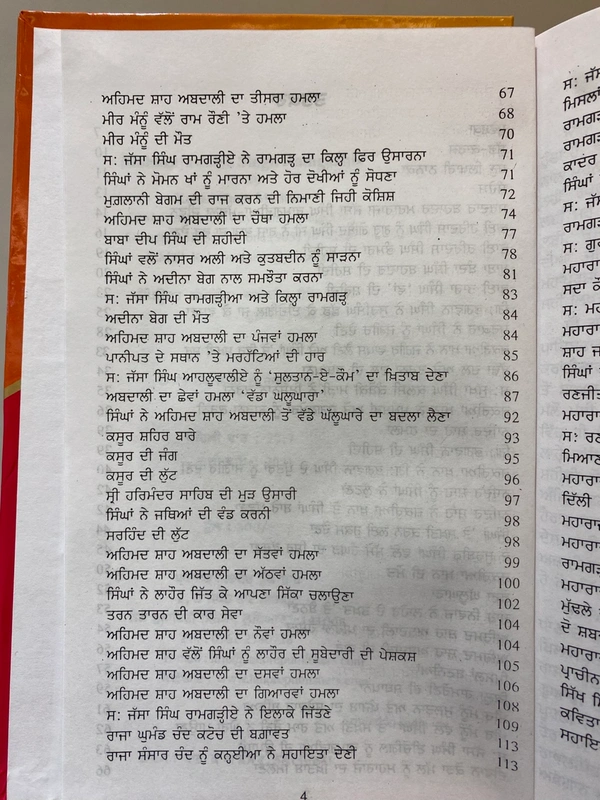 ਅਹਿਮਦ ਸ਼ਾਹ ਅਬਦਾਲੀ ਦਾ ਤੀਸਰਾ ਹਮਲਾ 67
ਮੀਰ ਮੰਨੂੰ ਵੱਲੋਂ ਰਾਮ ਰੌਣੀ 'ਤੇ ਹਮਲਾ 68
ਮੀਰ ਮੰਨੂੰ ਦੀ ਮੌਤ 70
ਸ: ਜੱਸਾ ਸਿੰਘ ਰਾਮਗੜ੍ਹੀਏ ਨੇ ਰਾਮਗੜ੍ਹ ਦਾ ਕਿਲ੍ਹਾ ਫਿਰ ਉਸਾਰਨਾ 71
ਸਿੰਘਾਂ ਨੇ ਮੋਮਨ ਖਾਂ ਨੂੰ ਮਾਰਨਾ ਅਤੇ ਹੋਰ ਦੋਖੀਆਂ ਨੂੰ ਸੋਧਣਾ 71
ਮੁਗ਼ਲਾਨੀ ਬੇਗਮ ਦੀ ਰਾਜ ਕਰਨ ਦੀ ਨਿਮਾਣੀ ਜਿਹੀ ਕੋਸ਼ਿਸ਼ 72
ਅਹਿਮਦ ਸ਼ਾਹ ਅਬਦਾਲੀ ਦਾ ਚੌਥਾ ਹਮਲਾ 74
ਬਾਬਾ ਦੀਪ ਸਿੰਘ ਦੀ ਸ਼ਹੀਦੀ 77
ਸਿੰਘਾਂ ਵਲੋਂ ਨਾਸਰ ਅਲੀ ਅਤੇ ਕੁਤਬਦੀਨ ਨੂੰ ਸਾੜਨਾ 78
ਸਿੰਘਾਂ ਨੇ ਅਦੀਨਾ ਬੇਗ ਨਾਲ ਸਮਝੌਤਾ ਕਰਨਾ 81
ਸ: ਜੱਸਾ ਸਿੰਘ ਰਾਮਗੜ੍ਹੀਆ ਅਤੇ ਕਿਲ੍ਹਾ ਰਾਮਗੜ੍ਹ 83
ਅਦੀਨਾ ਬੇਗ ਦੀ ਮੌਤ 84
ਅਹਿਮਦ ਸ਼ਾਹ ਅਬਦਾਲੀ ਦਾ ਪੰਜਵਾਂ ਹਮਲਾ 84
ਪਾਨੀਪਤ ਦੇ ਸਥਾਨ 'ਤੇ ਮਰਹੱਟਿਆਂ ਦੀ ਹਾਰ 85
ਸ: ਜੱਸਾ ਸਿੰਘ ਆਹਲੂਵਾਲੀਏ ਨੂੰ 'ਸੁਲਤਾਨ-ਏ-ਕੌਮ' ਦਾ ਖ਼ਿਤਾਬ ਦੇਣਾ 86
ਅਬਦਾਲੀ ਦਾ ਛੇਵਾਂ ਹਮਲਾ 'ਵੱਡਾ ਘੱਲੂਘਾਰਾ' 87
ਸਿੰਘਾਂ ਨੇ ਅਹਿਮਦ ਸ਼ਾਹ ਅਬਦਾਲੀ ਤੋਂ ਵੱਡੇ ਘੱਲੂਘਾਰੇ ਦਾ ਬਦਲਾ ਲੈਣਾ 92
ਕਸੂਰ ਸ਼ਹਿਰ ਬਾਰੇ 93
ਕਸੂਰ ਦੀ ਜੰਗ 95
ਕਸੂਰ ਦੀ ਲੁੱਟ 96
ਸ੍ਰੀ ਹਰਿਮੰਦਰ ਸਾਹਿਬ ਦੀ ਮੁੜ ਉਸਾਰੀ 97
ਸਿੰਘਾਂ ਨੇ ਜਥਿਆਂ ਦੀ ਵੰਡ ਕਰਨੀ 98
ਸਰਹਿੰਦ ਦੀ ਲੁੱਟ 98
ਅਹਿਮਦ ਸ਼ਾਹ ਅਬਦਾਲੀ ਦਾ ਸੱਤਵਾਂ ਹਮਲਾ 99
ਅਹਿਮਦ ਸ਼ਾਹ ਅਬਦਾਲੀ ਦਾ ਅੱਠਵਾਂ ਹਮਲਾ 100
ਸਿੰਘਾਂ ਨੇ ਲਾਹੌਰ ਜਿੱਤ ਕੇ ਆਪਣਾ ਸਿੱਕਾ ਚਲਾਉਣਾ 102
ਤਰਨ ਤਾਰਨ ਦੀ ਕਾਰ ਸੇਵਾ 104
ਅਹਿਮਦ ਸ਼ਾਹ ਅਬਦਾਲੀ ਦਾ ਨੌਵਾਂ ਹਮਲਾ 104
ਅਹਿਮਦ ਸ਼ਾਹ ਵੱਲੋਂ ਸਿੰਘਾਂ ਨੂੰ ਲਾਹੌਰ ਦੀ ਸੂਬੇਦਾਰੀ ਦੀ ਪੇਸ਼ਕਸ਼ 105
ਅਹਿਮਦ ਸ਼ਾਹ ਅਬਦਾਲੀ ਦਾ ਦਸਵਾਂ ਹਮਲਾ 106
ਅਹਿਮਦ ਸ਼ਾਹ ਅਬਦਾਲੀ ਦਾ ਗਿਆਰਵਾਂ ਹਮਲਾ 108
ਸ: ਜੱਸਾ ਸਿੰਘ ਰਾਮਗੜ੍ਹੀਏ ਨੇ ਇਲਾਕੇ ਜਿੱਤਣੇ 109
ਰਾਜਾ ਘੁਮੰਡ ਚੰਦ ਕਟੋਚ ਦੀ ਬਗ਼ਾਵਤ 113
ਰਾਜਾ ਸੰਸਾਰ ਚੰਦ ਨੂੰ ਕਨ੍ਹਈਆ ਨੇ ਸਹਾਇਤਾ ਦੇਣੀ 113
4